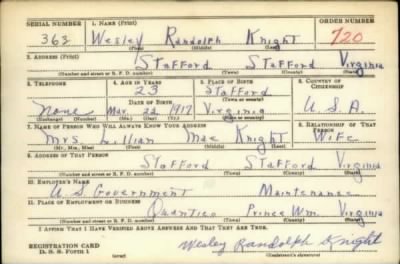 SERIAL NUMBER 1. NAME (Print) ORDER NUMBER
362 Wesley Randolph Knight 720
(First) (Middle) (Last)
2. ADDRESS (Print)
Stafford Stafford Virginia
(Number and street or R. F. D. number) (Town) (County) (State)
3. TELEPHONE 4. AGE IN YEARS 5. PLACE OF BIRTH 6. COUNTRY OF CITIZENSHIP
23 Stafford
(Town or county)
DATE OF BIRTH
None Mar. 22 1917 Virginia U.S.A.
(Exchange) (Number) (Mo.) (Day) (Yr.) (State or country)
7. NAME OF PERSON WHO WILL ALWAYS KNOW YOUR ADDRESS 8. RELATIONSHIP OF THAT PERSON
Mrs Lillian Mae Knight Wife
(Mr., Mrs., Miss) (First) (Middle) (Last)
9. ADDRESS OF THAT PERSON
Stafford Stafford Virginia
(Number and street or R. F. D. number) (Town) (County) (State)
10. EMPLOYER'S NAME
U.S Government Maintenance
11. PLACE OF EMPLOYMENT OR BUSINESS
Quantico Prince Wm. Virginia
(Number and street or R. F. D. number) (Town) (County) (State)
I AFFIRM THAT I HAVE VERIFIED ABOVE ANSWERS AND THAT THEY ARE TRUE.
REGISTRATION CARD
D. S. S. FORM 1 (over) Wesley Randolph Knight
(Registrant's signature)